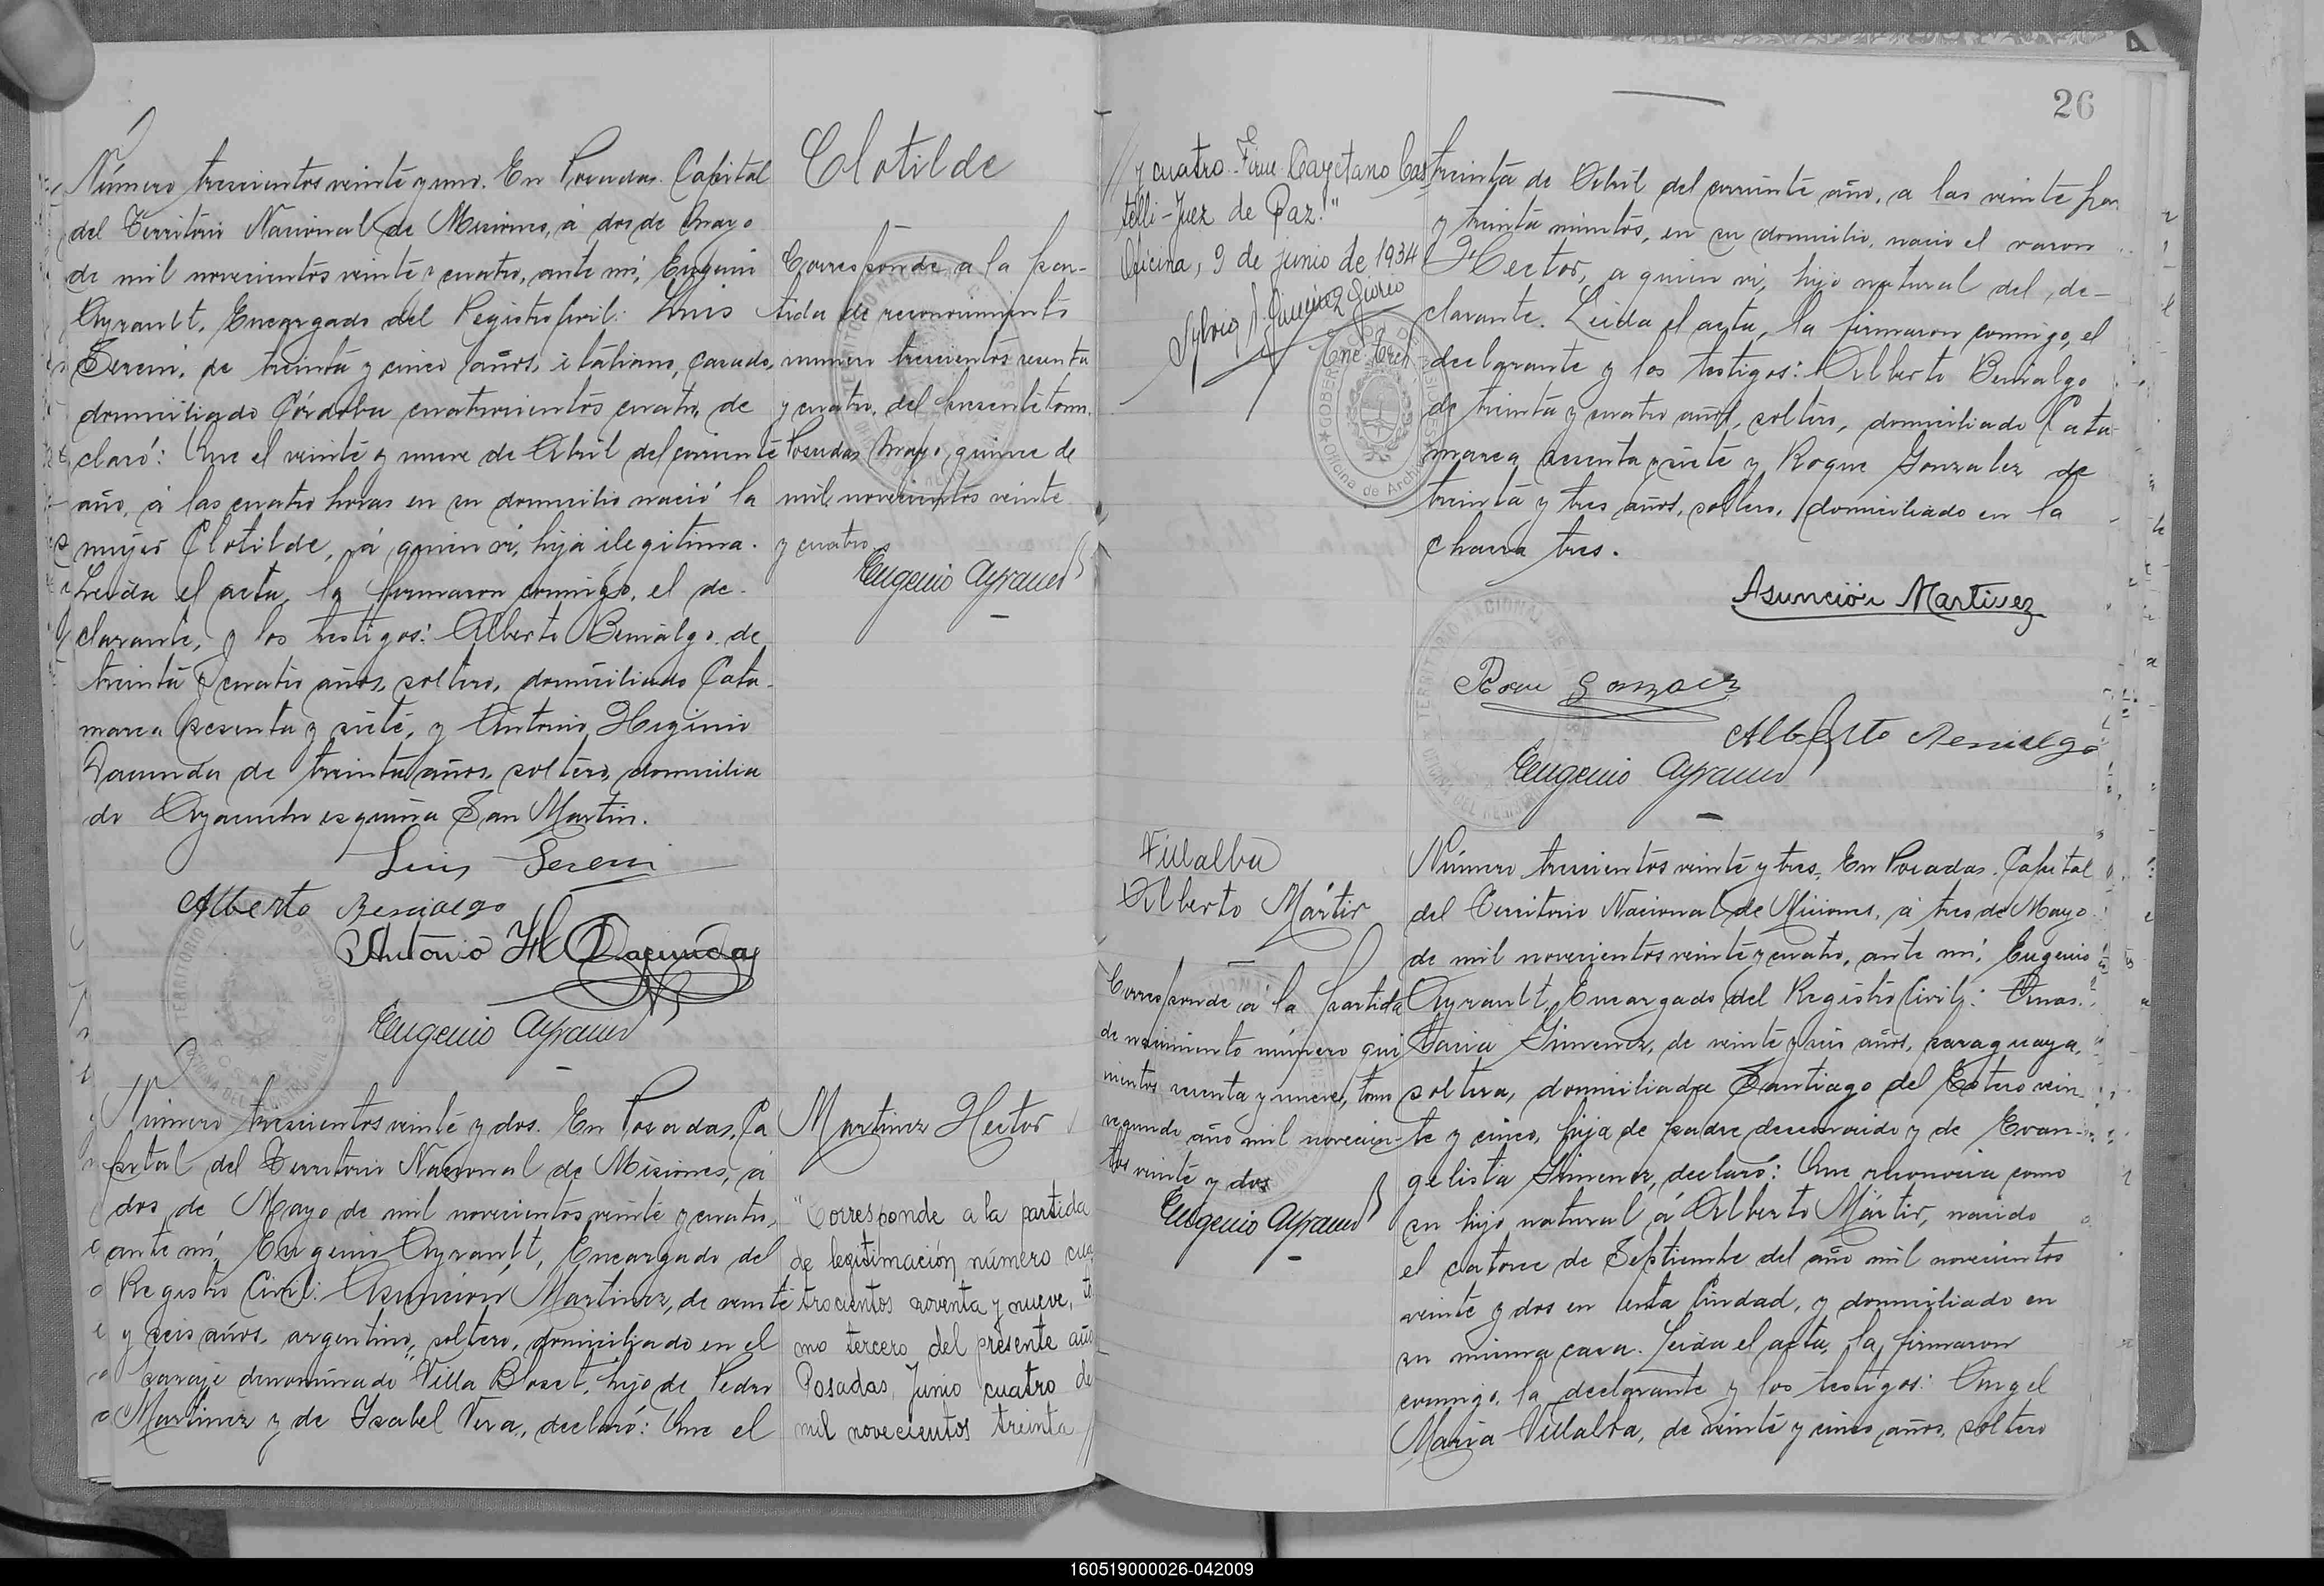 Número trescientos veinte y uno. En Posadas. Capital
del Territorio Nacional de Misiones, á dos de Mayo
de mil novecientos veinte y cuatro, ante mí, Eugenio
Ayrault, Encargado del Registro Civil: Luis
Sereni, de treinta y cinco años, italiano, casado,
domiciliado Córdoba cuatrocientos cuatro, de
claró: Que el veinte y nueve de Abril del corriente
año, á las cuatro horas en su domicilio nació la
mujer Clotilde, á quien ví, hija ilegitima.
Leída el acta, la firmaron conmigo, el de-
clarante, y los testigos: Alberto Benialgo de
treinta y cuatro años, soltero, domiciliado Cata-
marca sesenta y siete, y Antonio Higinio
Dacunda de treinta años, soltero, domicilia
do Ayacucho esquina San Martin.
Luis Sereni
Alberto Benialgo
Antonio H Dacunda
Eugenio Ayrault
Clotilde
Corresponde a la par-
tida de reconocimiento
numero trescientos sesenta
y cuatro, del presente tomo.
Posadas, Mayo, quince de
mil novecientos veinte
y cuatro
Eugenio Ayrault
Número trescientos veinte y dos. En Posadas, Ca
pital del Territorio Nacional de Misiones, á
dos de Mayo de mil novecientos veinte y cuatro,
ante mí, Eugenio Ayrault, Encargado del
Registro Civil: Asunción Martinez, de veinte
y seis años, argentino, soltero, domiciliado en el
paraje denominado "Villa Bloset, hijo de Pedro
Martinez y de Isabel Vera, declaró: Que el
Martinez Hector
"Corresponde a la partida
de legitimación número cua
trocientos noventa y nueve, to
mo tercero del presente año
Posadas, Junio cuatro de
mil novecientos treinta //
26
// y cuatro. Firme Cayetano Cas
telli - Juez de Paz."
Oficina, 9 de junio de 1934
treinta de Abril del corriente año, a las veinte horas
y treinta minutos, en su domicilio, nació el varon
Hector, a quien ví, hijo natural del de-
clarante. Leída el acta, la firmaron conmigo, el
declarante y los testigos: Alberto Benialgo
de treinta y cuatro años, soltero, domiciliado Cata-
marca sesenta y siete y Roque Gonzalez de
treinta y tres años, soltero, domiciliado en la
chacra tres.
Asunción Martinez
Roque Gonzalez
Alberto Benialgo
Eugenio Ayrault
Villalba
Alberto Mártir
Corresponde á la partida
de nacimiento número qui
nientos sesenta y nueve, tomo
segundo año mil novecien-
tos veinte y dos
Eugenio Ayrault
Número trescientos veinte y tres. En Posadas. Capital
del Territorio Nacional de Misiones, á tres de Mayo
de mil novecientos veinte y cuatro, ante mí, Eugenio
Ayrault, Encargado del Registro Civil: Anas-
tacia Gimenez, de veinte y seis años, paraguaya,
soltera, domiciliada Santiago del Estero vein-
te y cinco, hija de padre desconocido y de Evan-
gelista Gimenez, declaró: Que reconocia como
su hijo natural á Alberto Mártir, nacido
el catorce de Septiembre del año mil novecientos
veinte y dos en esta Ciudad, y domiciliado en
su misma casa. Leída el acta, la firmaron
conmigo, la declarante y los testigos: Angel
Maria Villalba, de veinte y cinco años, soltero
160519000026-042009